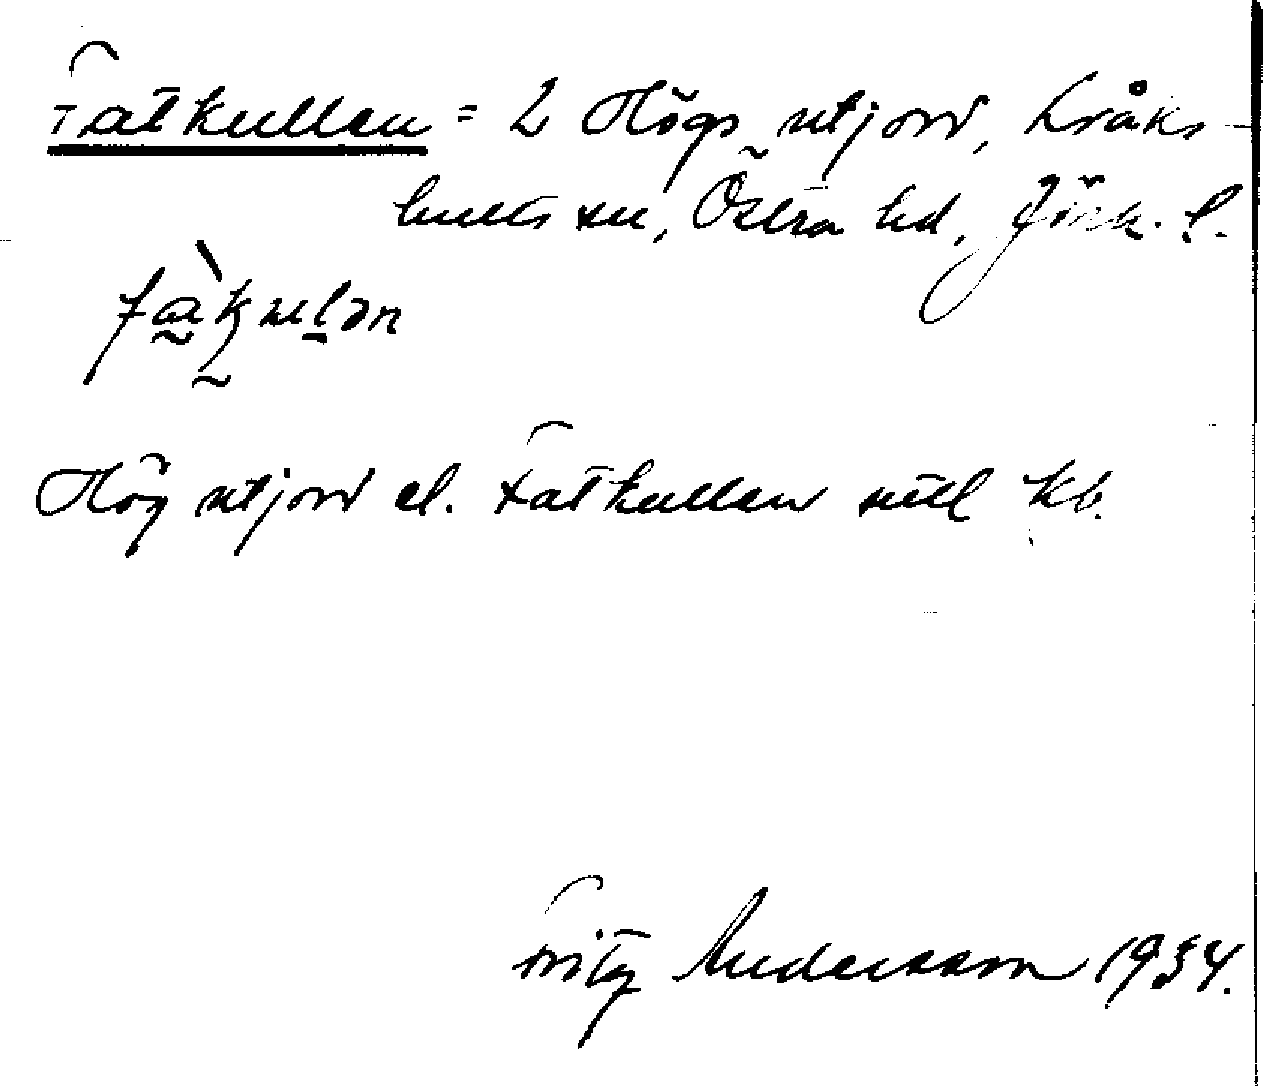 Fatkullen = 2 Högs utjord, Lråks-
hults sn, Östra hd, Jönk. l.
Hög utjord el. Fatkullen utl Kb.
Fritz Andersson 1934.